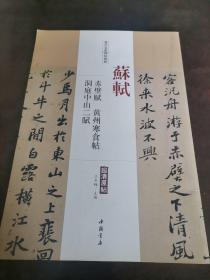 客泛舟游于赤壁之下清風
徐来水波不興
蘇軾
赤壁赋 黄州寒食帖
洞庭中山二赋
超清原帖
中国书店
少焉月出於東山之上裵回
於斗牛之間白露横江水